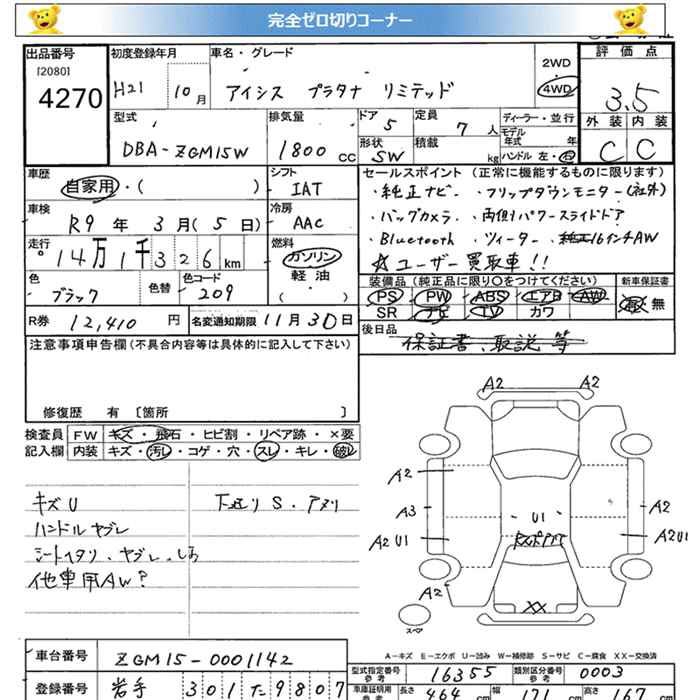 完全ゼロ切りコーナー
出品番号 初度登録年月 車名・グレード 評価点
[2080] H21 10月 アイシス プラタナ リミテッド 2WD 4WD 3.5
4270
型式 排気量 ドア 5 定員 7人 ディーラー・並行 外装 内装
DBA-ZGM15W 1800 CC 形状 SW 積載 kg モデル年式 年 ハンドル 左・右 C C
車歴 シフト セールスポイント (正常に機能するものに限ります)
自家用・( ) IAT ・純正ナビ・フリップダウンモニター(社外)
車検 冷房 ・バックカメラ・両側パワースライドドア
R9年 3月(5日) AAC ・Bluetooth・ツィーター・純正16インチAW
走行 14万1千326km 燃料 ☆ユーザー買取車!!
ガソリン 軽油 ( )
色 色替 色コード 装備品(純正品に限り○をつけてください) 新車保証書
ブラック 209 PS PW ABS エアB AW 有 無
SR ナビ TV カワ
R券 12,410円 名変通知期限 11月30日 後日品
保証書、取説 等
注意事項申告欄(不具合内容等は具体的に記入して下さい)
修復歴 有 [箇所 ]
検査員 FW キズ・飛石・ヒビ割・リペア跡・×要
記入欄 内装 キズ・汚レ・コゲ・穴・スレ・キレ・破レ
キズU 下廻りS・アメリ
ハンドルヤブレ
シートヘタリ・ヤブレ・しお
他車用AW?
A2 A2
A2 A2
A3 U1
A2U1 A2U1
A2
XX
スペア
A-キズ E-エクボ U-凹み W-補修跡 S-サビ C-腐食 XX-交換済
車台番号 ZGM15-0001142 型式指定番号 参考 16355 類別区分番号 参考 0003
登録番号 岩手 301 た 9807 車庫証明用 参考 長さ 464 cm 幅 171 cm 高さ 167 cm